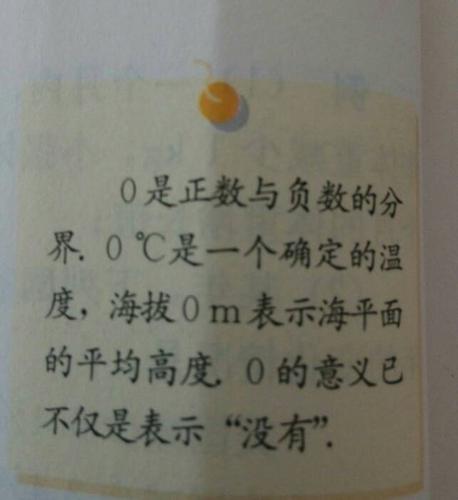 0是正数与负数的分
界. 0 ℃是一个确定的温
度，海拔0 m表示海平面
的平均高度. 0 的意义已
不仅是表示“没有”.